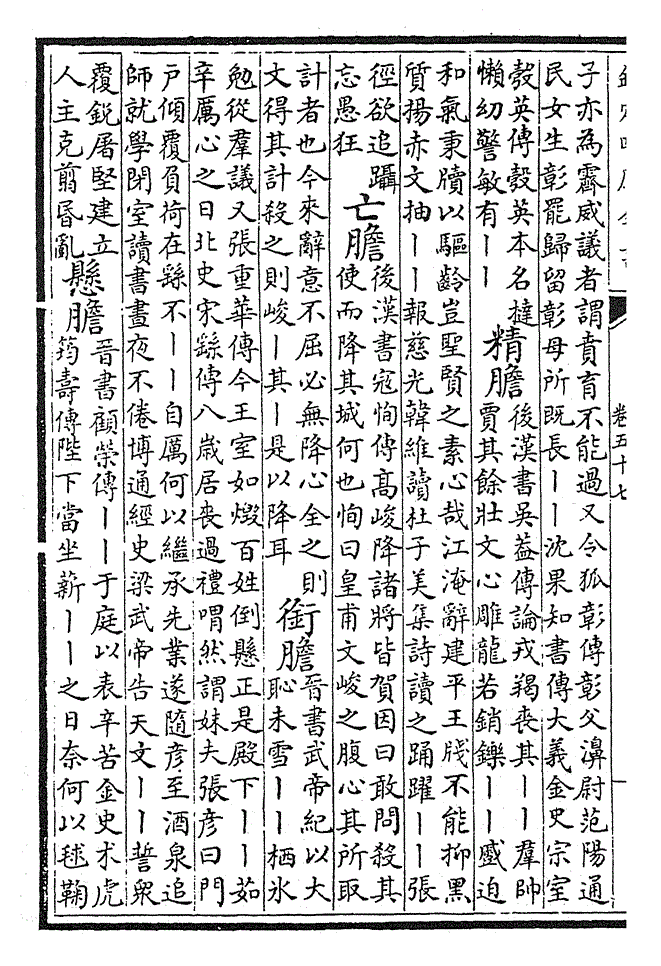 卷五十七
子亦為靂威議者謂賁育不能過又令狐彰傳彰父濞尉范陽通
民女生彰罷歸留彰母所既長丨丨沈果知書傳大義金史宗室
縠英傳縠英本名撻
懶幼警敏有丨丨
精膽
後漢書吳葢傳論戎羯喪其丨丨羣帥
賈其餘壯文心雕龍若銷鑠丨丨蹙迫
和氣秉牘以驅齡豈聖賢之素心哉江淹辭建平王牋不能抑黑
質揚赤文抽丨丨報慈光韓維讀杜子美集詩讀之踊躍丨丨張
徑欲追躡
忘愚狂
亡膽
後漢書寇恂傳高峻降諸將皆賀因曰敢問殺其
使而降其城何也恂曰皇甫文峻之腹心其所取
計者也今來辭意不屈必無降心全之則
文得其計殺之則峻丨其丨是以降耳
銜膽
晉書武帝紀以大
恥未雪丨丨栖氷
勉從羣議又張重華傳今王室如燬百姓倒懸正是殿下丨丨茹
辛厲心之日北史宋繇傳八歲居喪過禮喟然謂妹夫張彥曰門
戶傾覆負荷在繇不丨丨自厲何以繼承先業遂隨彥至酒泉追
師就學閉室讀書晝夜不倦博通經史梁武帝告天文丨丨誓衆
覆銳屠堅建立
人主克翦昬亂
懸膽
晉書顧榮傳丨丨于庭以表辛苦金史朮虎
筠壽傳陛下當坐薪丨丨之日奈何以毬鞠